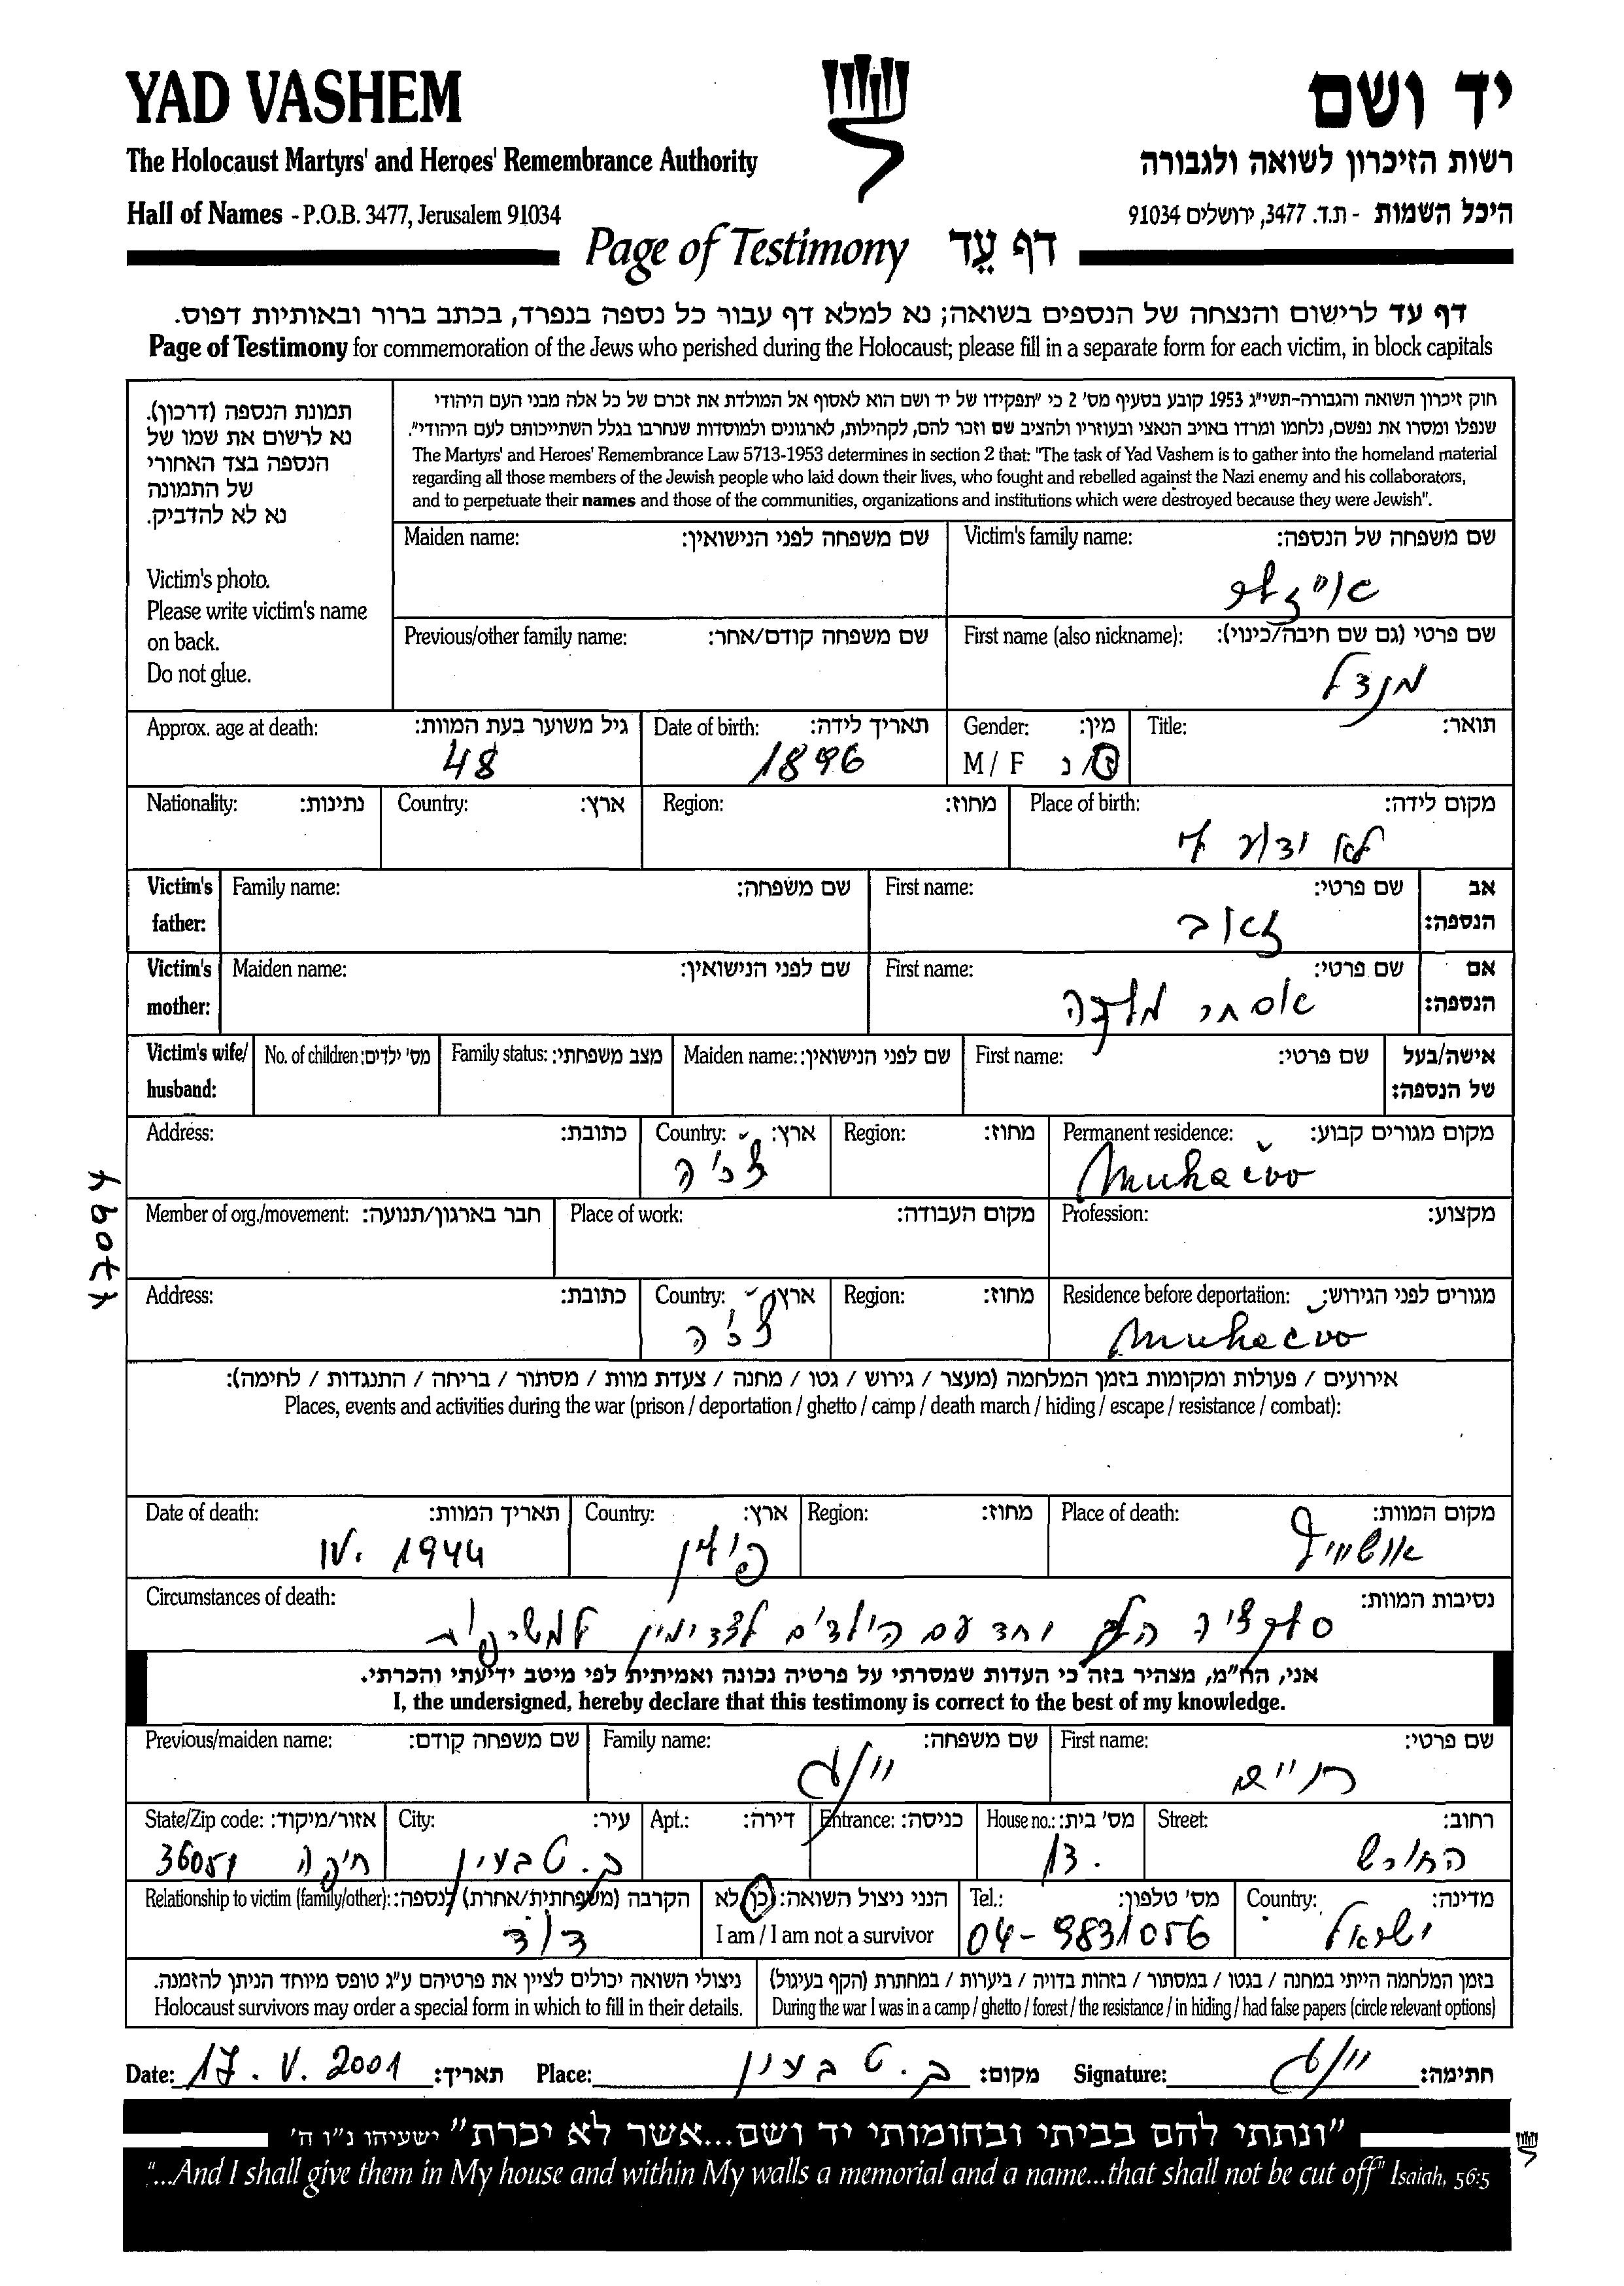 YAD VASHEM
יד ושם
The Holocaust Martyrs' and Heroes' Remembrance Authority
רשות הזיכרון לשואה ולגבורה
Hall of Names - P.O.B. 3477, Jerusalem 91034
היכל השמות - ת.ד. 3477, ירושלים 91034
Page of Testimony דף עֵד
דף עד לרישום והנצחה של הנספים בשואה; נא למלא דף עבור כל נספה בנפרד, בכתב ברור ובאותיות דפוס.
Page of Testimony for commemoration of the Jews who perished during the Holocaust; please fill in a separate form for each victim, in block capitals
תמונת הנספה (דרכון).
נא לרשום את שמו של
הנספה בצד האחורי
של התמונה
נא לא להדביק.
Victim's photo.
Please write victim's name
on back.
Do not glue.
חוק זיכרון השואה והגבורה-תשי"ג 1953 קובע בסעיף מס' 2 כי "תפקידו של יד ושם הוא לאסוף אל המולדת את זכרם של כל אלה מבני העם היהודי
שנפלו ומסרו את נפשם, נלחמו ומרדו באויב הנאצי ובעוזריו ולהציב שם וזכר להם, לקהילות, לארגונים ולמוסדות שנחרבו בגלל השתייכותם לעם היהודי".
The Martyrs' and Heroes' Remembrance Law 5713-1953 determines in section 2 that: "The task of Yad Vashem is to gather into the homeland material
regarding all those members of the Jewish people who laid down their lives, who fought and rebelled against the Nazi enemy and his collaborators,
and to perpetuate their names and those of the communities, organizations and institutions which were destroyed because they were Jewish".
Maiden name: שם משפחה לפני הנישואין:
Victim's family name: שם משפחה של הנספה:
Previous/other family name: שם משפחה קודם/אחר:
First name (also nickname): שם פרטי (גם שם חיבה/כינוי):
מנדל
Approx. age at death: גיל משוער בעת המוות:
48
Date of birth: תאריך לידה:
1896
Gender: מין:
M / F ז/נ
Title: תואר:
Nationality: נתינות:
Country: ארץ:
Region: מחוז:
Place of birth: מקום לידה:
לא ידוע לי
Victim's father:
Family name: שם משפחה:
First name: שם פרטי:
אב הנספה:
זאב
Victim's mother:
Maiden name: שם לפני הנישואין:
First name: שם פרטי:
אם הנספה:
מלכה
Victim's wife/ husband:
No. of children: מס' ילדים:
Family status: מצב משפחתי:
Maiden name: שם לפני הנישואין:
First name: שם פרטי:
אישה/בעל של הנספה:
Address: כתובת:
Country: ארץ:
צ'כיה
Region: מחוז:
Permanent residence: מקום מגורים קבוע:
Mukačevo
Member of org./movement: חבר בארגון/תנועה:
Place of work: מקום העבודה:
Profession: מקצוע:
Address: כתובת:
Country: ארץ:
צ'כיה
Region: מחוז:
Residence before deportation: מגורים לפני הגירוש:
Mukačevo
אירועים / פעולות ומקומות בזמן המלחמה (מעצר / גירוש / גטו / מחנה / צעדת מוות / מסתור / בריחה / התנגדות / לחימה):
Places, events and activities during the war (prison / deportation / ghetto / camp / death march / hiding / escape / resistance / combat):
Date of death: תאריך המוות:
IV. 1944
Country: ארץ:
פולין
Region: מחוז:
Place of death: מקום המוות:
אושוויץ
Circumstances of death: נסיבות המוות:
סלקציה הלך יחד עם הילדים לצד ימין למשרפות
אני, הח"מ, מצהיר בזה כי העדות שמסרתי על פרטיה נכונה ואמיתית לפי מיטב ידיעתי והכרתי.
I, the undersigned, hereby declare that this testimony is correct to the best of my knowledge.
Previous/maiden name: שם משפחה קודם:
Family name: שם משפחה:
First name: שם פרטי:
חיים
State/Zip code: אזור/מיקוד:
חיפה 36081
City: עיר:
ק. טבעון
Apt.: דירה:
Entrance: כניסה:
House no.: מס' בית:
13.
Street: רחוב:
החורש
Relationship to victim (family/other): הקרבה (משפחתית/אחרת) לנספה:
דוד
הנני ניצול השואה: כן/לא
I am / I am not a survivor
Tel.: מס' טלפון:
04-9831056
Country: מדינה:
ישראל
ניצולי השואה יכולים לציין את פרטיהם ע"ג טופס מיוחד הניתן להזמנה.
Holocaust survivors may order a special form in which to fill in their details.
בזמן המלחמה הייתי במחנה / בגטו / במסתור / בזהות בדויה / ביערות / במחתרת (הקף בעיגול)
During the war I was in a camp / ghetto / forest / the resistance / in hiding / had false papers (circle relevant options)
Date: 17. V. 2001 תאריך:
Place: ק. טבעון מקום:
Signature: חתימה:
"ונתתי להם בביתי ובחומותי יד ושם...אשר לא יכרת" ישעיהו נ"ו ה'
"...And I shall give them in My house and within My walls a memorial and a name...that shall not be cut off" Isaiah, 56:5